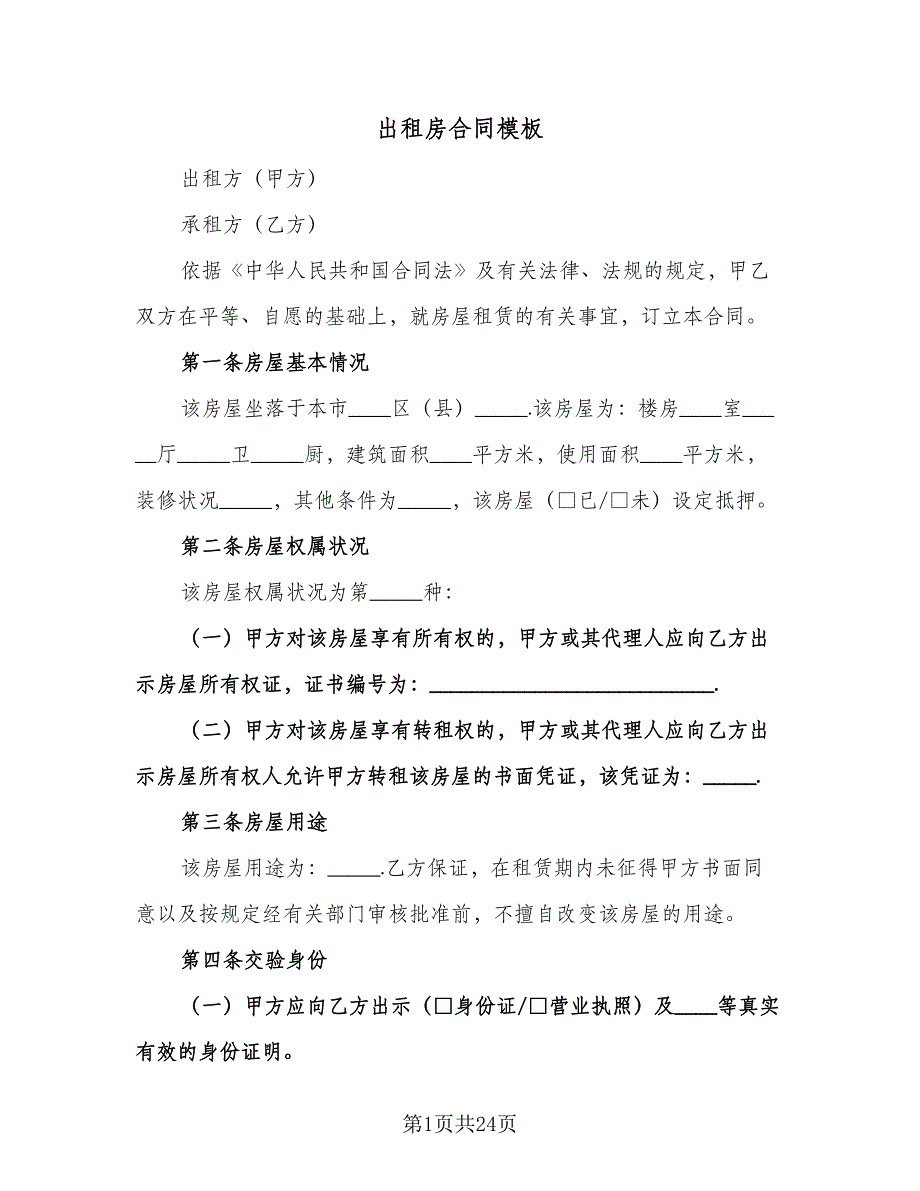 出租房合同模板
出租方（甲方）
承租方（乙方）
依据《中华人民共和国合同法》及有关法律、法规的规定，甲乙
双方在平等、自愿的基础上，就房屋租赁的有关事宜，订立本合同。
第一条房屋基本情况
该房屋坐落于本市____区（县）_____.该房屋为：楼房____室___
__厅_____卫_____厨，建筑面积____平方米，使用面积____平方米，
装修状况_____，其他条件为_____，该房屋（□已/□未）设定抵押。
第二条房屋权属状况
该房屋权属状况为第_____种：
（一）甲方对该房屋享有所有权的，甲方或其代理人应向乙方出
示房屋所有权证，证书编号为：___________________________.
（二）甲方对该房屋享有转租权的，甲方或其代理人应向乙方出
示房屋所有权人允许甲方转租该房屋的书面凭证，该凭证为：_____.
第三条房屋用途
该房屋用途为：_____.乙方保证，在租赁期内未征得甲方书面同
意以及按规定经有关部门审核批准前，不擅自改变该房屋的用途。
第四条交验身份
（一）甲方应向乙方出示（□身份证/□营业执照）及____等真实
有效的身份证明。
第1页共24页